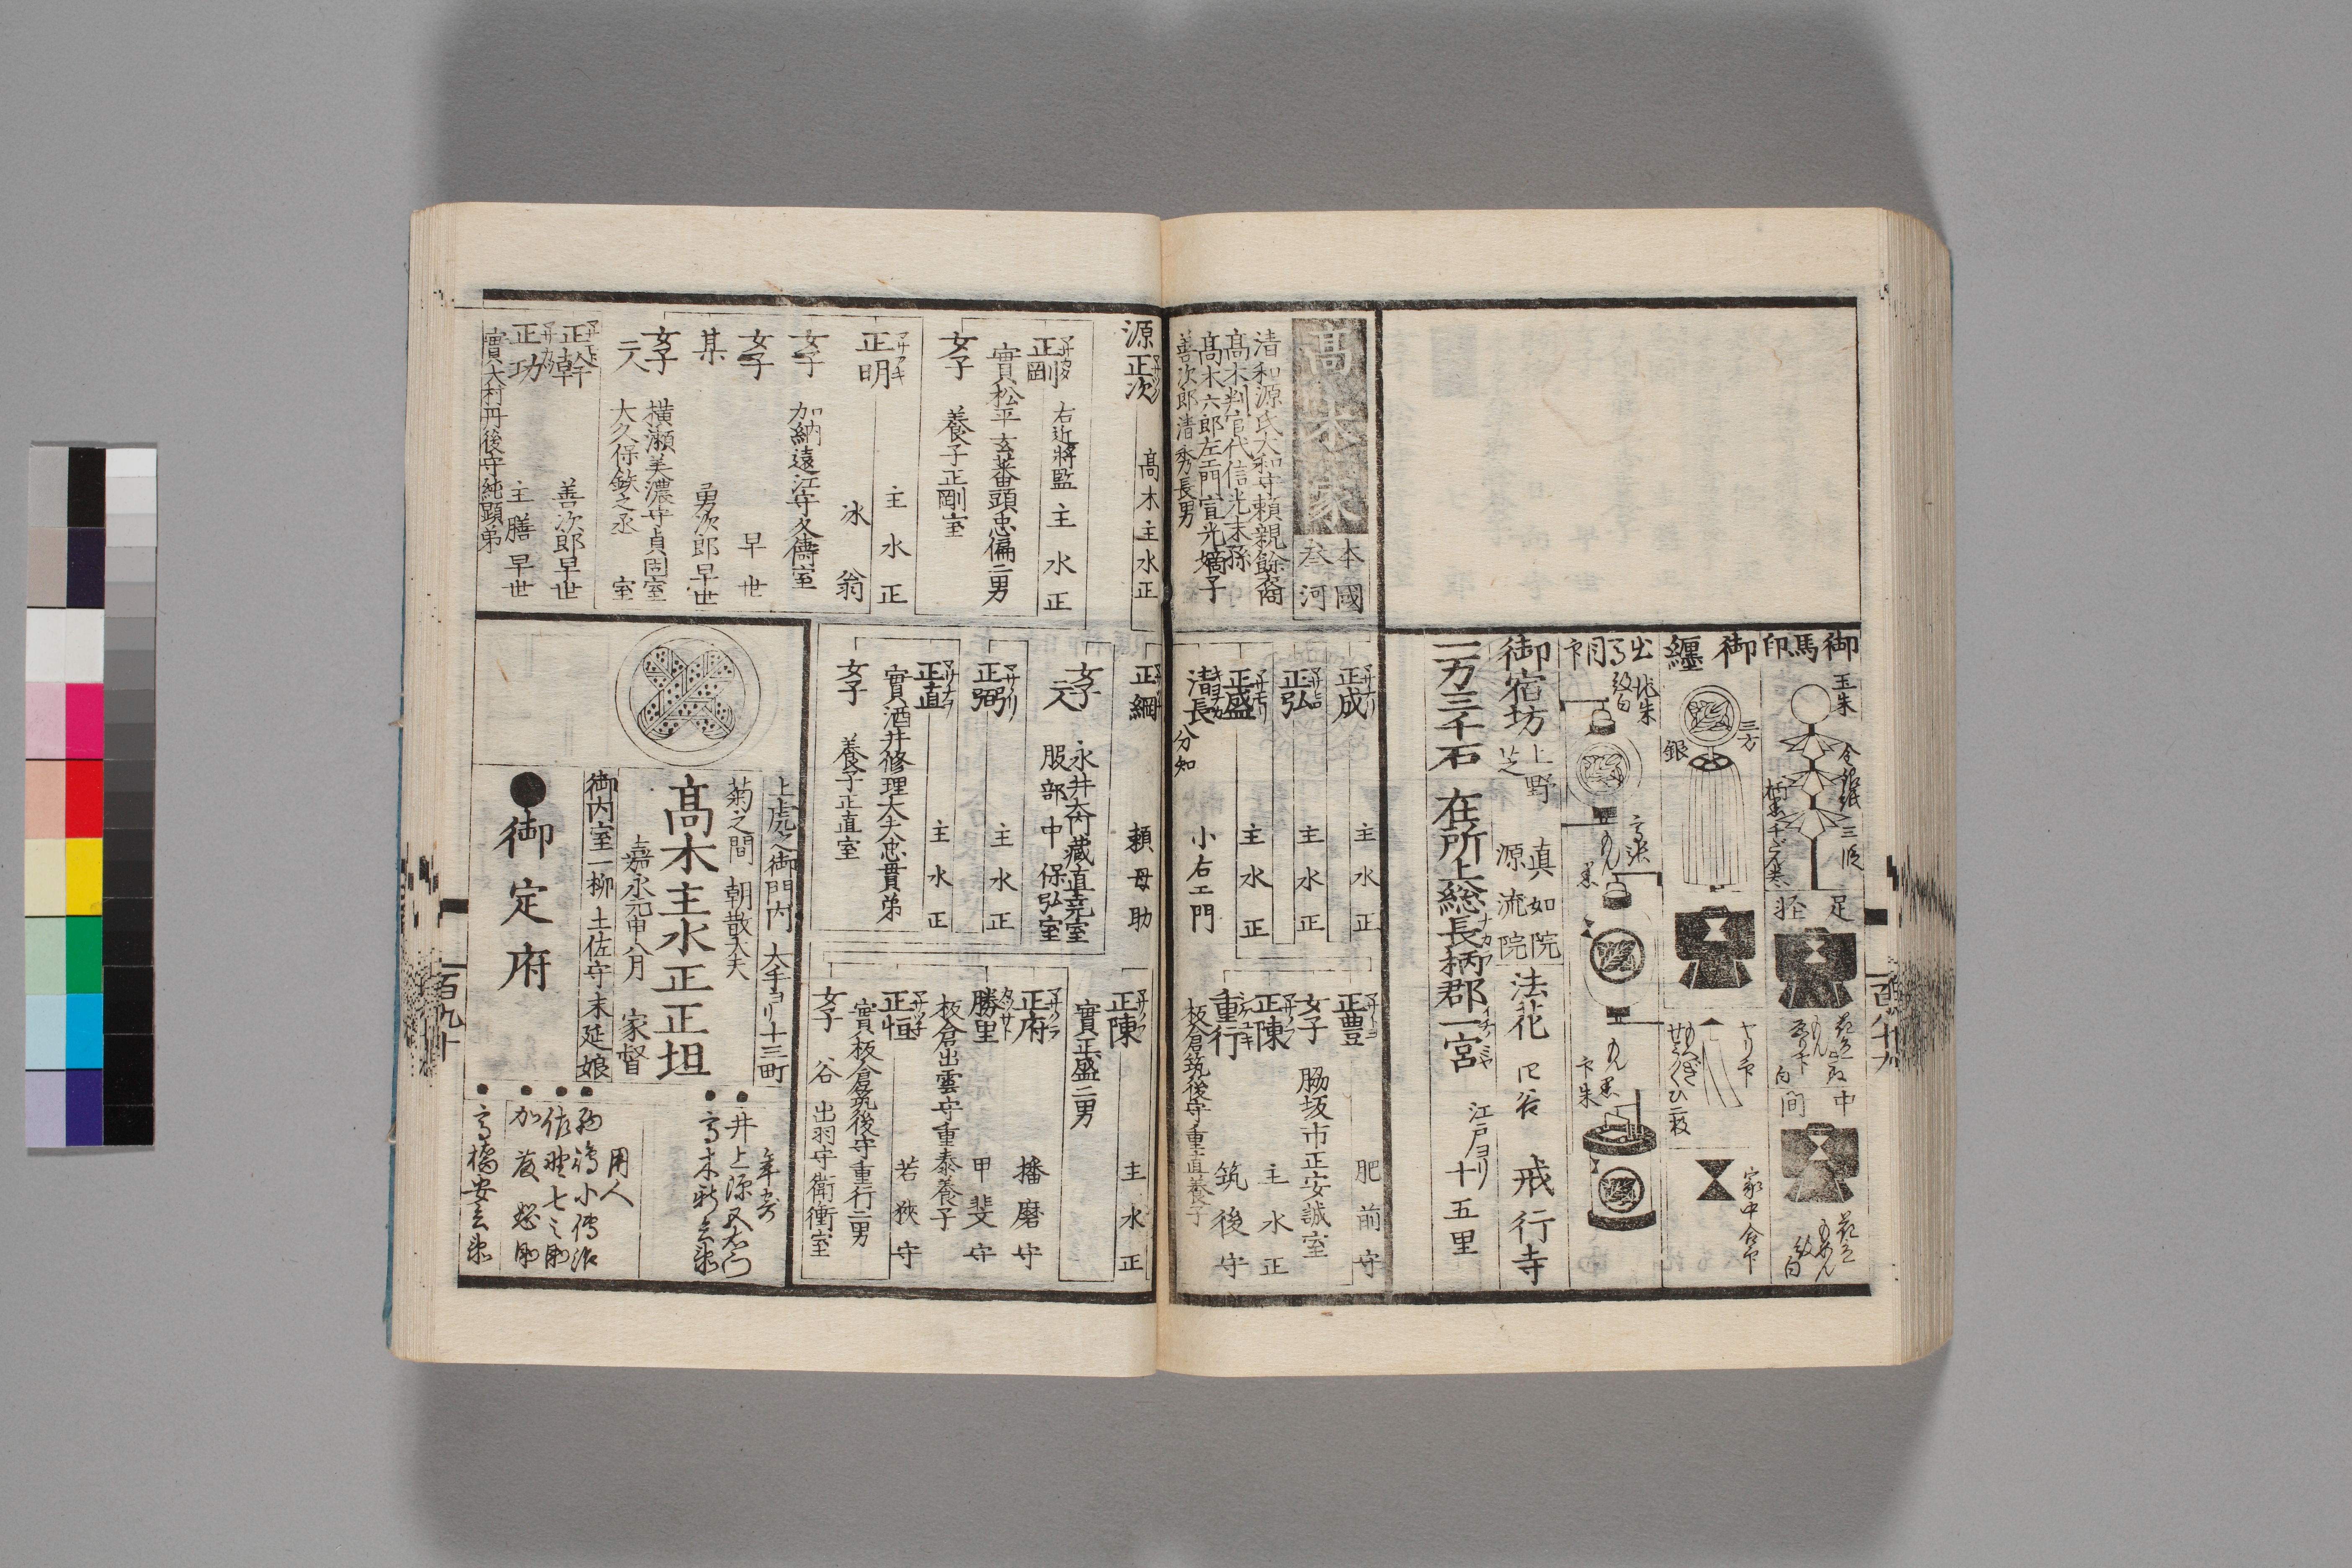 御馬印
玉朱
足
軽
中
間
御纏
三方
銀
家中合印
御宿坊
上野
芝
真如院
源流院
法花
戒行寺
一万三千石
在所上総長柄郡一宮
ナカラ
イチノミヤ
江戸ヨリ十五里
高木家
本國
参河
清和源氏大和守頼親餘裔
高木判官代信光末孫
高木六郎左エ門宣光嫡子
善次郎清秀長男
正成
主水正
正弘
主水正
正盛
主水正
清長
分知
小右エ門
正豊
肥前守
女子
脇坂市正安誠室
正陳
主水正
重行
筑後守
板倉筑後守重直養子
源正次
高木主水正
正剛
右近将監
主水正
實松平玄蕃頭忠偏二男
女子
養子正剛室
正明
主水正
氷翁
女子
加納遠江守久儔室
女子
早世
某
勇次郎早世
女子
二人
横瀬美濃守貞固室
大久保鉄之丞室
正幹
善次郎早世
正功
主膳早世
實大村丹後守純顕弟
正綱
頼母助
女子
二人
永井大内蔵直堯室
服部中保弘室
正弼
主水正
正直
主水正
實酒井修理大夫忠貫弟
女子
養子正直室
正陳
主水正
實正盛二男
正府
播磨守
勝里
甲斐守
板倉出雲守重泰養子
正恒
若狭守
實板倉筑後守重行二男
女子
谷出羽守衛衝室
上虎之御門内
大手ヨリ十三町
菊之間
朝散大夫
高木主水正正坦
嘉永元申八月
家督
御内室一柳土佐守末延娘
●御定府
年寄
●井上源又右衛門
用人
●加友
●高橋安兵衛
百九十